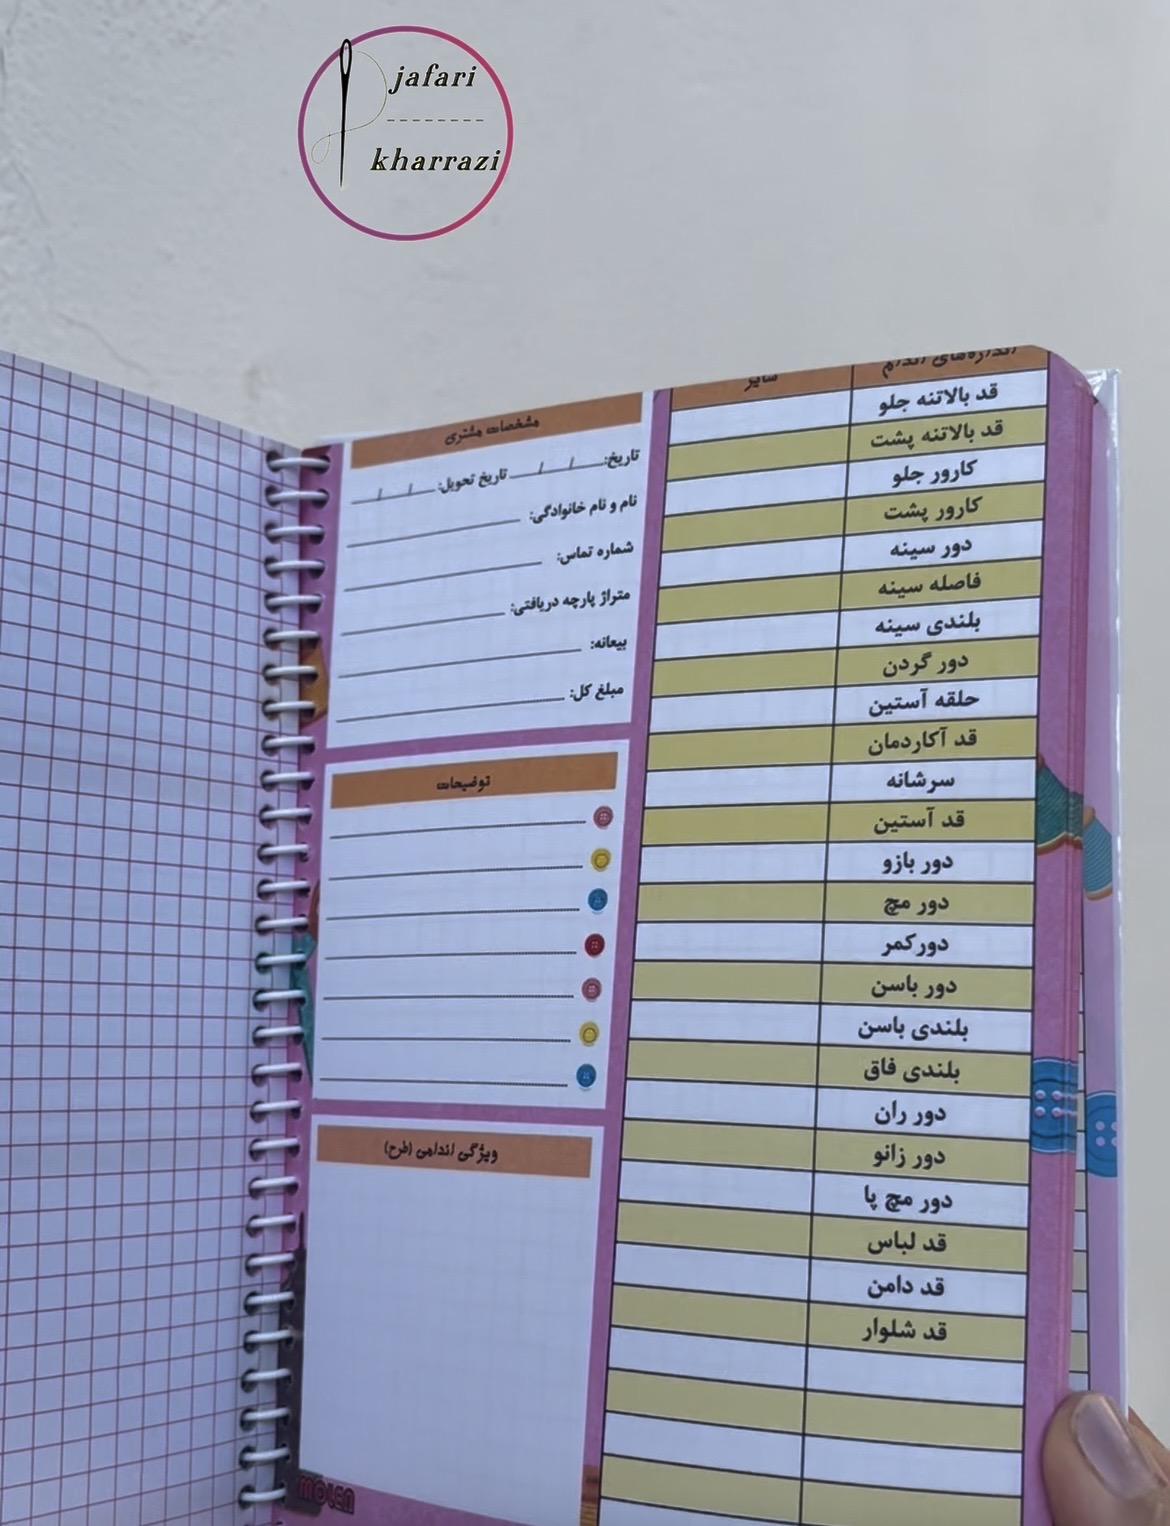 jafari
kharrazi
اندازه‌های اندام
سایز
قد بالاتنه جلو
قد بالاتنه پشت
کارور جلو
کارور پشت
دور سینه
فاصله سینه
بلندی سینه
دور گردن
حلقه آستین
قد آکاردمان
سرشانه
قد آستین
دور بازو
دور مچ
دورکمر
دور باسن
بلندی باسن
بلندی فاق
دور ران
دور زانو
دور مچ پا
قد لباس
قد دامن
قد شلوار
مشخصات مشتری
تاریخ: / / تاریخ تحویل: / /
نام و نام خانوادگی:
شماره تماس:
متراژ پارچه دریافتی:
بیعانه:
مبلغ کل:
توضیحات
ویژگی اندامی (طرح)
molen